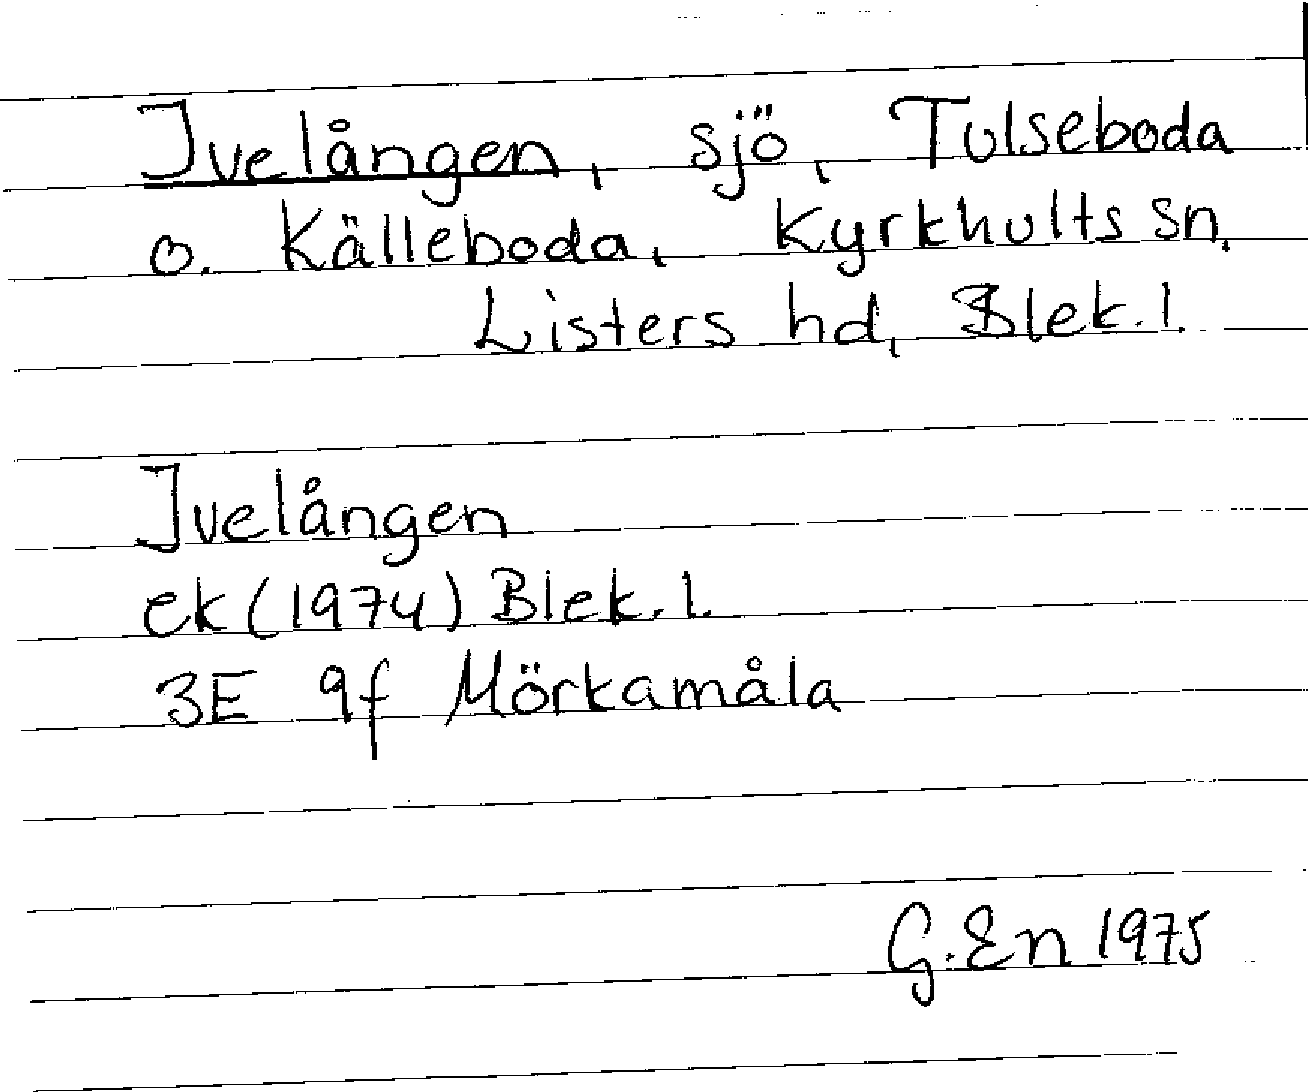 Ivelången, sjö, Tulseboda
o. Källeboda, Kyrkhults sn.
Listers hd, Blek.l.
Ivelången
ek (1974) Blek.l.
3E 9f Mörkamåla
G.En 1975